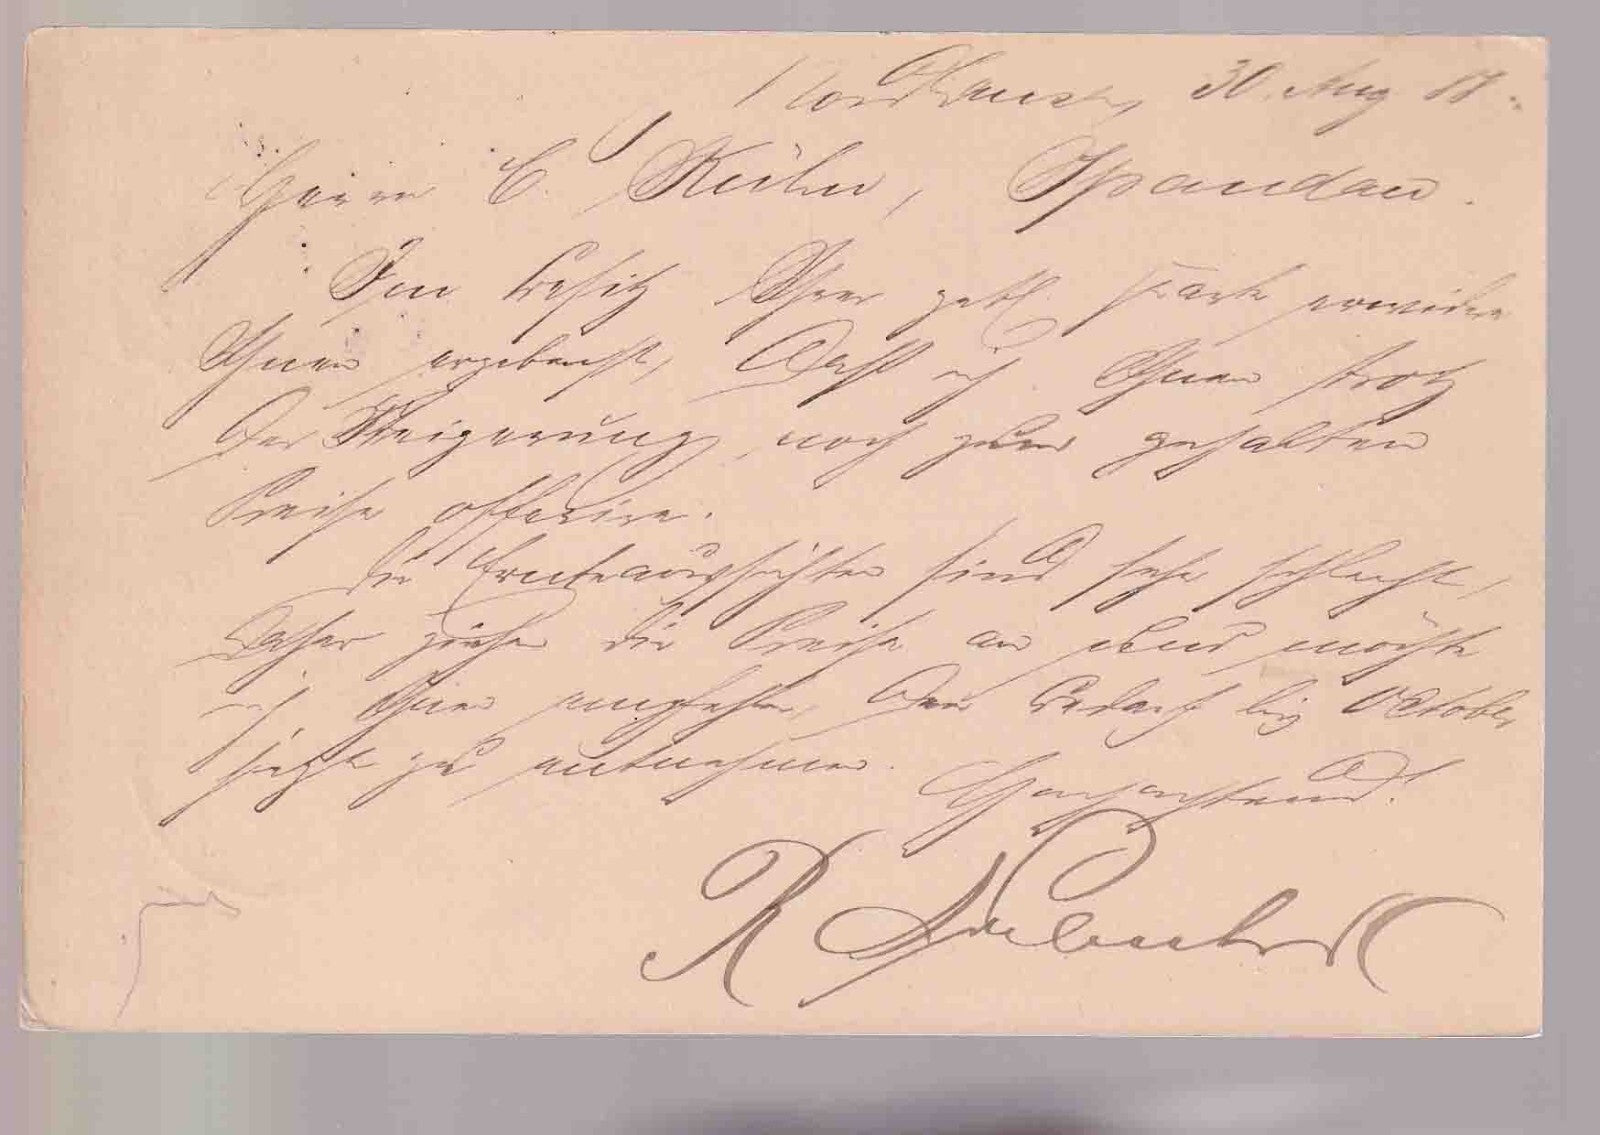 Nordhausen, 30. Aug 88.
Herrn C. Kühn, Spandau.
Im Besitz Ihrer gefl. Karte erwidere
Ihnen ergebenst, daß ich Ihnen trotz
der Steigerung noch zum gehalten
Preise offerire.
Die Ernteaussichten sind sehr schlecht,
daher ziehen die Preise an und möchte
ich Ihnen empfehlen, den Bedarf bis October
jetzt zu entnehmen.
Hochachtend.
R